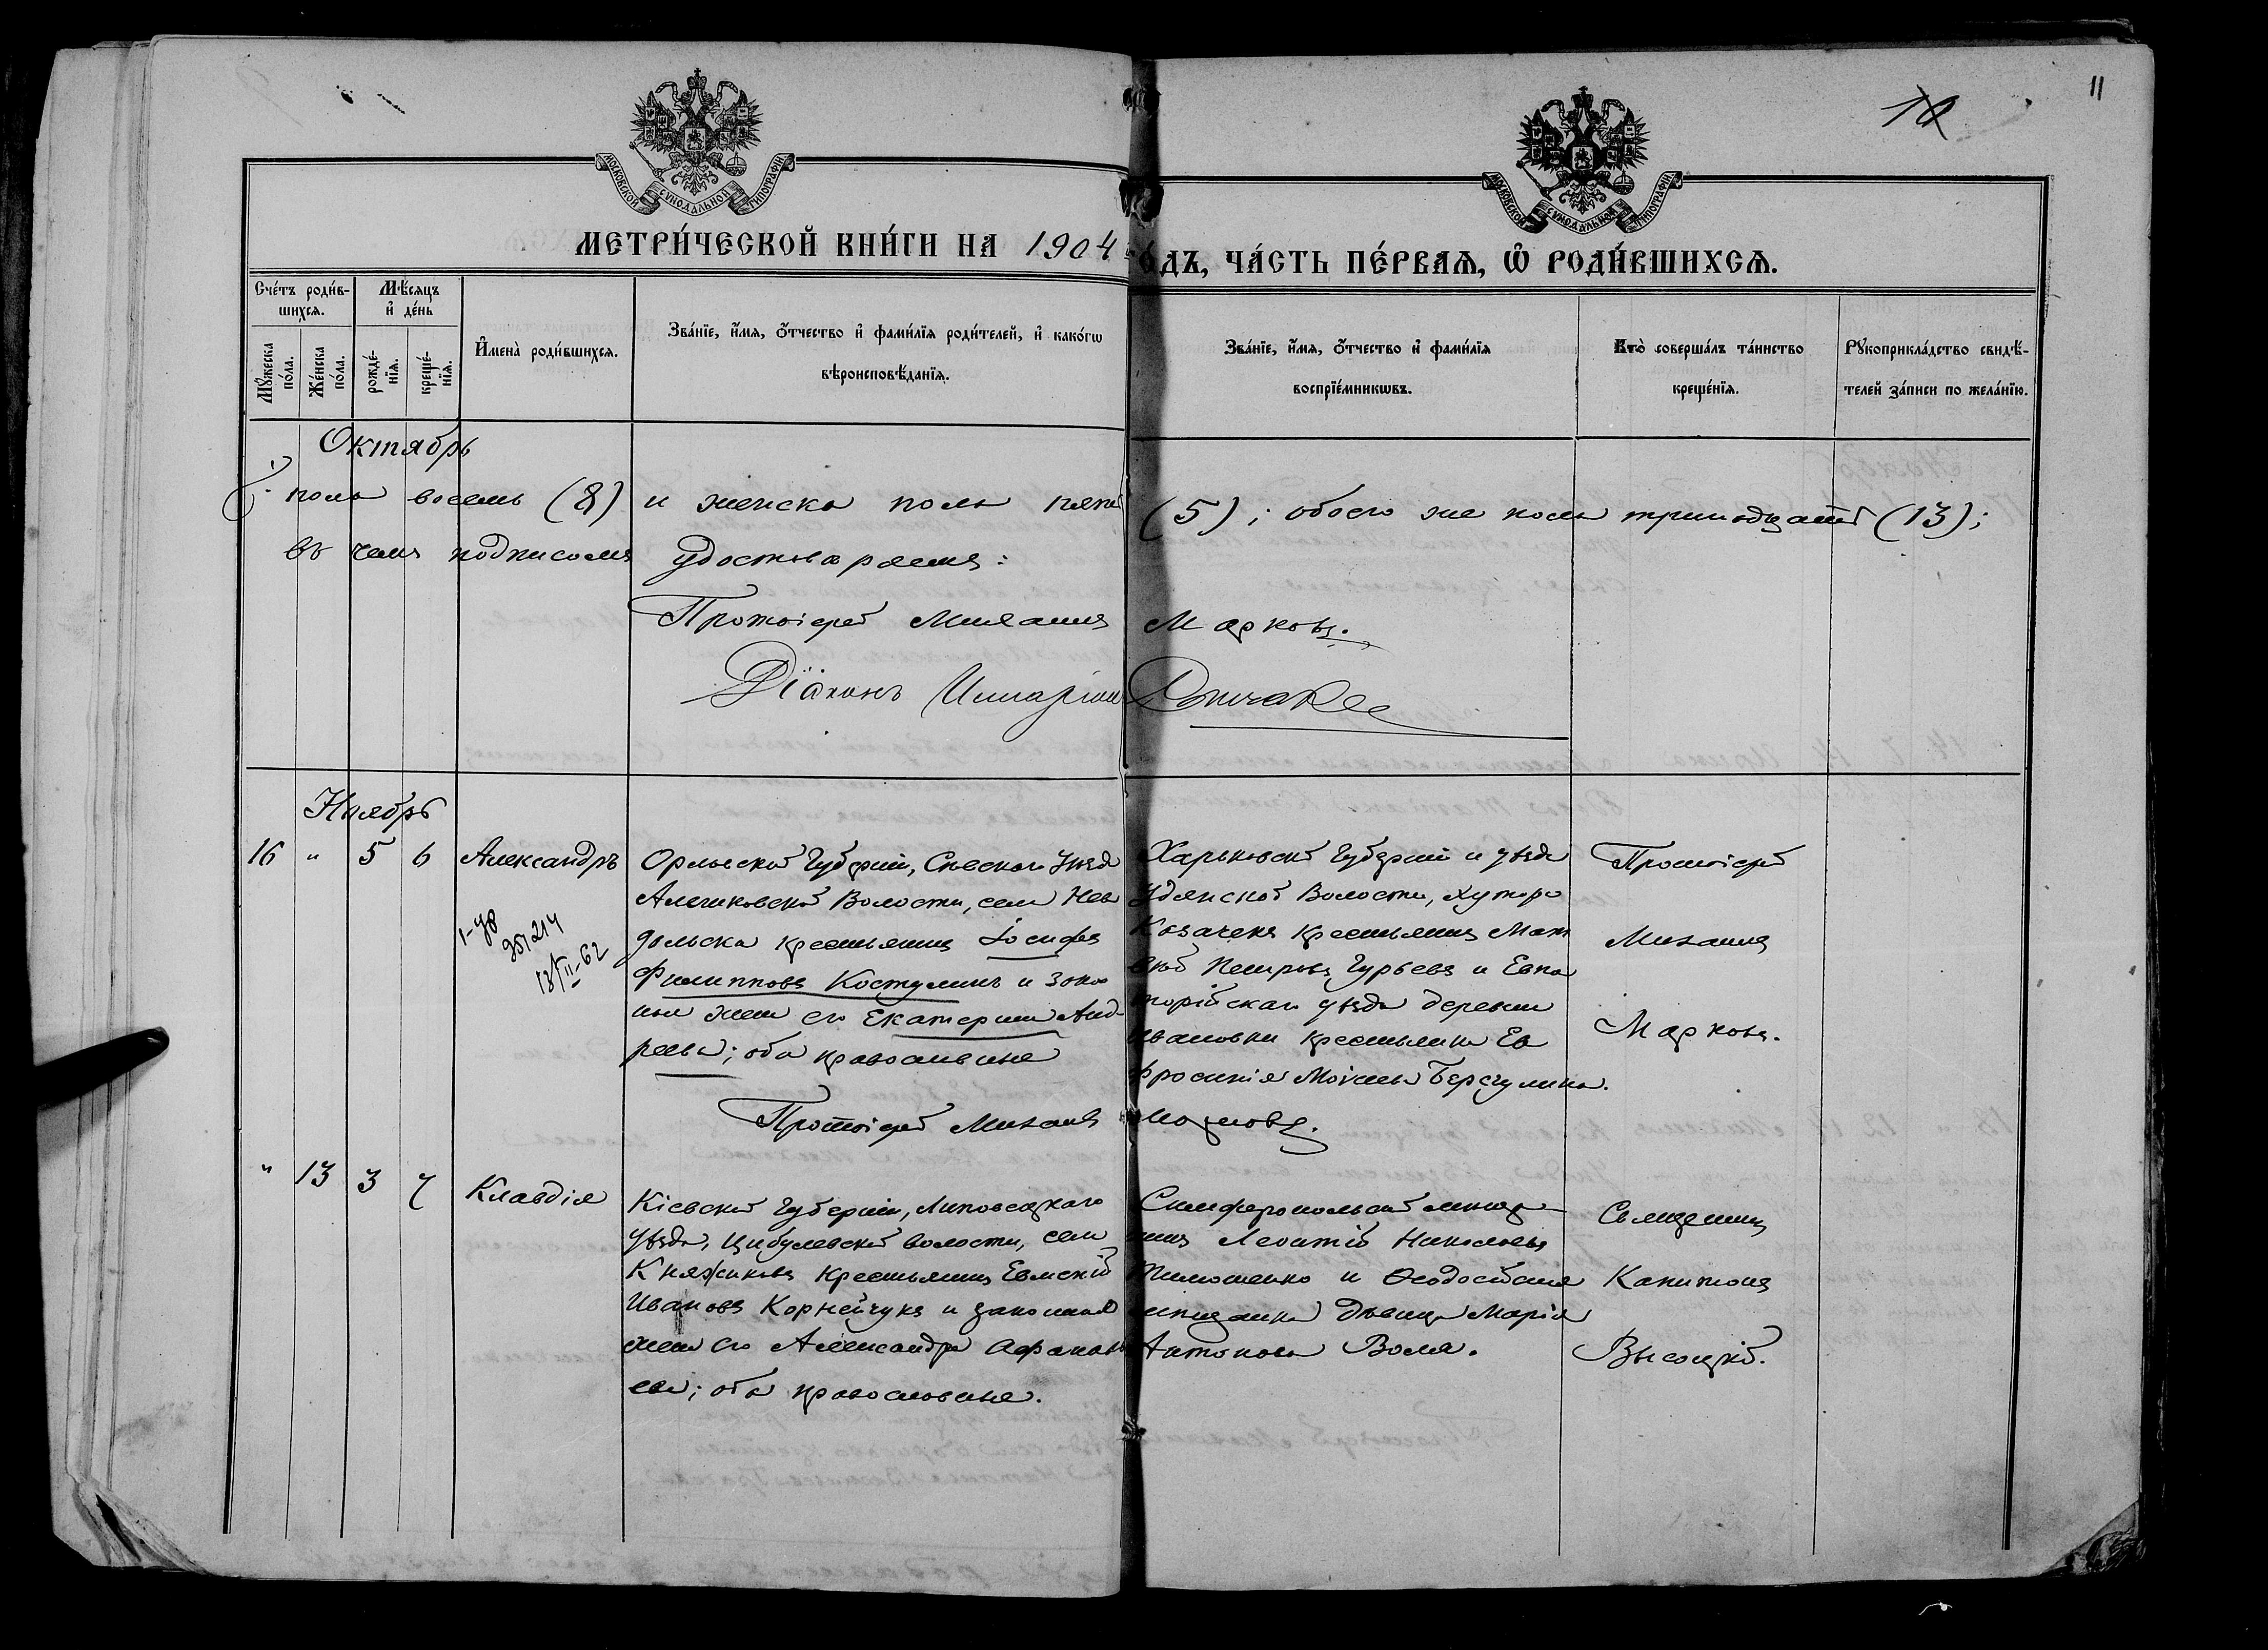 11
10
МОСКОВСКОЙ СУНОДАЛЬНОЙ ТИПОГРАФІИ
МОСКОВСКОЙ СУНОДАЛЬНОЙ ТИПОГРАФІИ
МЕТРИ́ЧЕСКОЙ КНИ́ГИ НА 1904 го́дъ, ЧА́СТЬ ПЕ́РВАѦ, Ѡ҆ РОДИ́ВШИХСѦ.
Сче́тъ роди́в-
шихсѧ.
Мꙋ́жеска
по́ла.
Же́нска
по́ла.
Мѣ́сѧцъ
и҆ де́нь
рожде́-
нїѧ.
креще́-
нїѧ.
И҆мена̀ роди́вшихсѧ.
Зва́нїе, и҆́мѧ, ѻ҆́тчество и҆ фами́лїѧ роди́телей, и҆ како́гѡ
вѣроисповѣ́данїѧ.
Зва́нїе, и҆́мѧ, ѻ҆́тчество и҆ фами́лїѧ
воспрїе́мникѡвъ.
Кто̀ соверша́лъ та́инство
креще́нїѧ.
Рꙋкоприкла́дство свидѣ́-
телей за́писи по жела́нїю.
Октябрь
пола восемь (8) и женска пола пять (5); обоего же пола тринадцать (13);
въ чемъ подписомъ удостоваряемъ:
Протоіерей Михаилъ Марковъ.
Діаконъ
Ноябрь
16 " 5 6 Александръ
1-уд
18/II-62
Орловской Губерніи, Сѣвскаго Уѣзда
Волости, села Нев
дольска крестьянинъ Іосифъ
Филипповъ Костулинъ и закон
ная жена его Екатерина Анд-
реева; оба православные
Харьковской Губерніи и уѣзда
Удянской Волости, хутора
Козачека крестьянинъ Мат
вѣй Петровъ Гурьевъ и Евпа
торійскаго уѣзда деревни
Ивановки крестьянка Ев
фросинія Моисеева
Протоіерей
Михаилъ
Марковъ.
Протоіерей Михаилъ Марковъ.
" 13 3 7 Клавдія
Кіевской Губерніи, Липовецкаго
уѣзда, Цибулевской волости, села
Княжикова крестьянинъ
Ивановъ Корнейчукъ и законная
жена его Александра Афанась
ева; оба православные.
Симферопольскій мѣща-
нинъ Леонтій Николаевъ
Тимошенко и Ѳеодосійская
мѣщанка дѣвица Марія
Антонова Воля.
Священникъ
Капитонъ
Высоцкій.